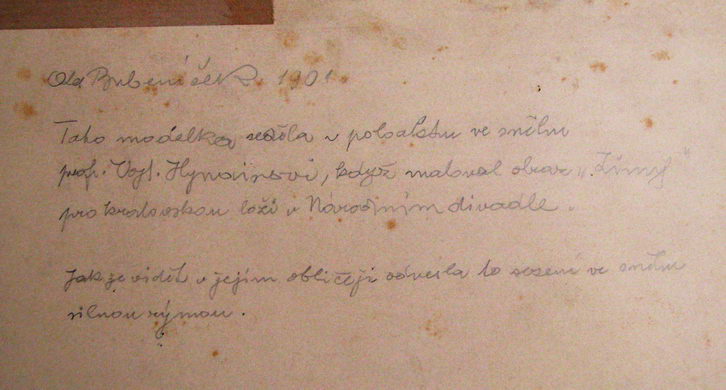 Ota Bubeníček. 1901
Tato modelka seděla v poloaktu ve sněhu
prof. Vojt. Hynaisovi, když maloval obraz „Zimy"
pro královskou loži v Národním divadle.
Jak je vidět v jejím obličeji odnesla to sezení ve sněhu
silnou rýmou.